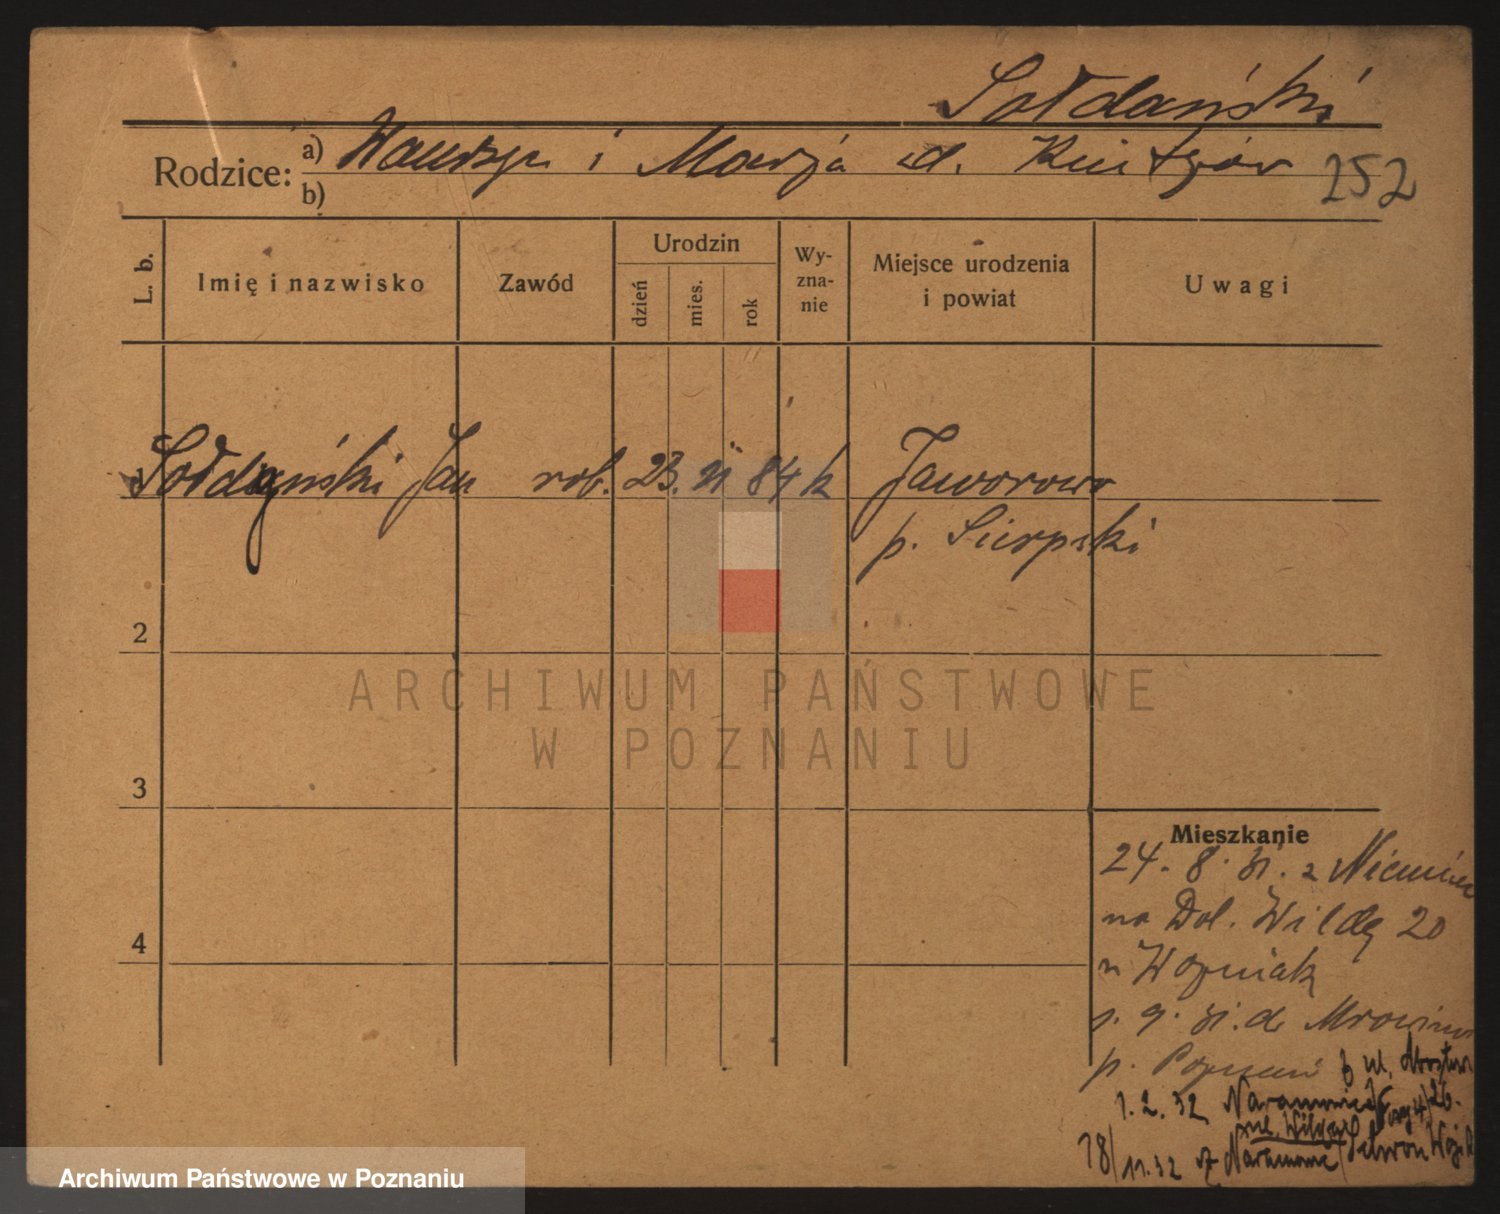 Sołdański
Rodzice: a) i Marja d.
b)
252
L. b.
Imię i nazwisko
Zawód
Urodzin
dzień
mies.
rok
Wy-
zna-
nie
Miejsce urodzenia
i powiat
Uwagi
Sołdański Jan rob. 23. 84 k Jaworowo
p. Sierpski
2
3
4
Mieszkanie
24. 8. 31. z Niemiec
na Dol. Wildę 20
u Woźniak
9. 31. do
p. Poznań ul.
1. 2. 32 Naramowice
ul. Wilczy
18/11.32 z Naramowic
ARCHIWUM PAŃSTWOWE
W POZNANIU
Archiwum Państwowe w Poznaniu